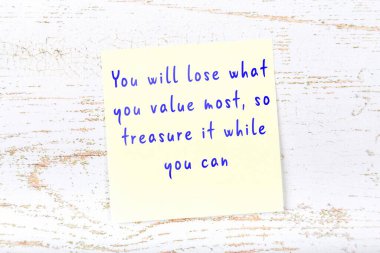 You will lose what
you value most, so
treasure it while
you can